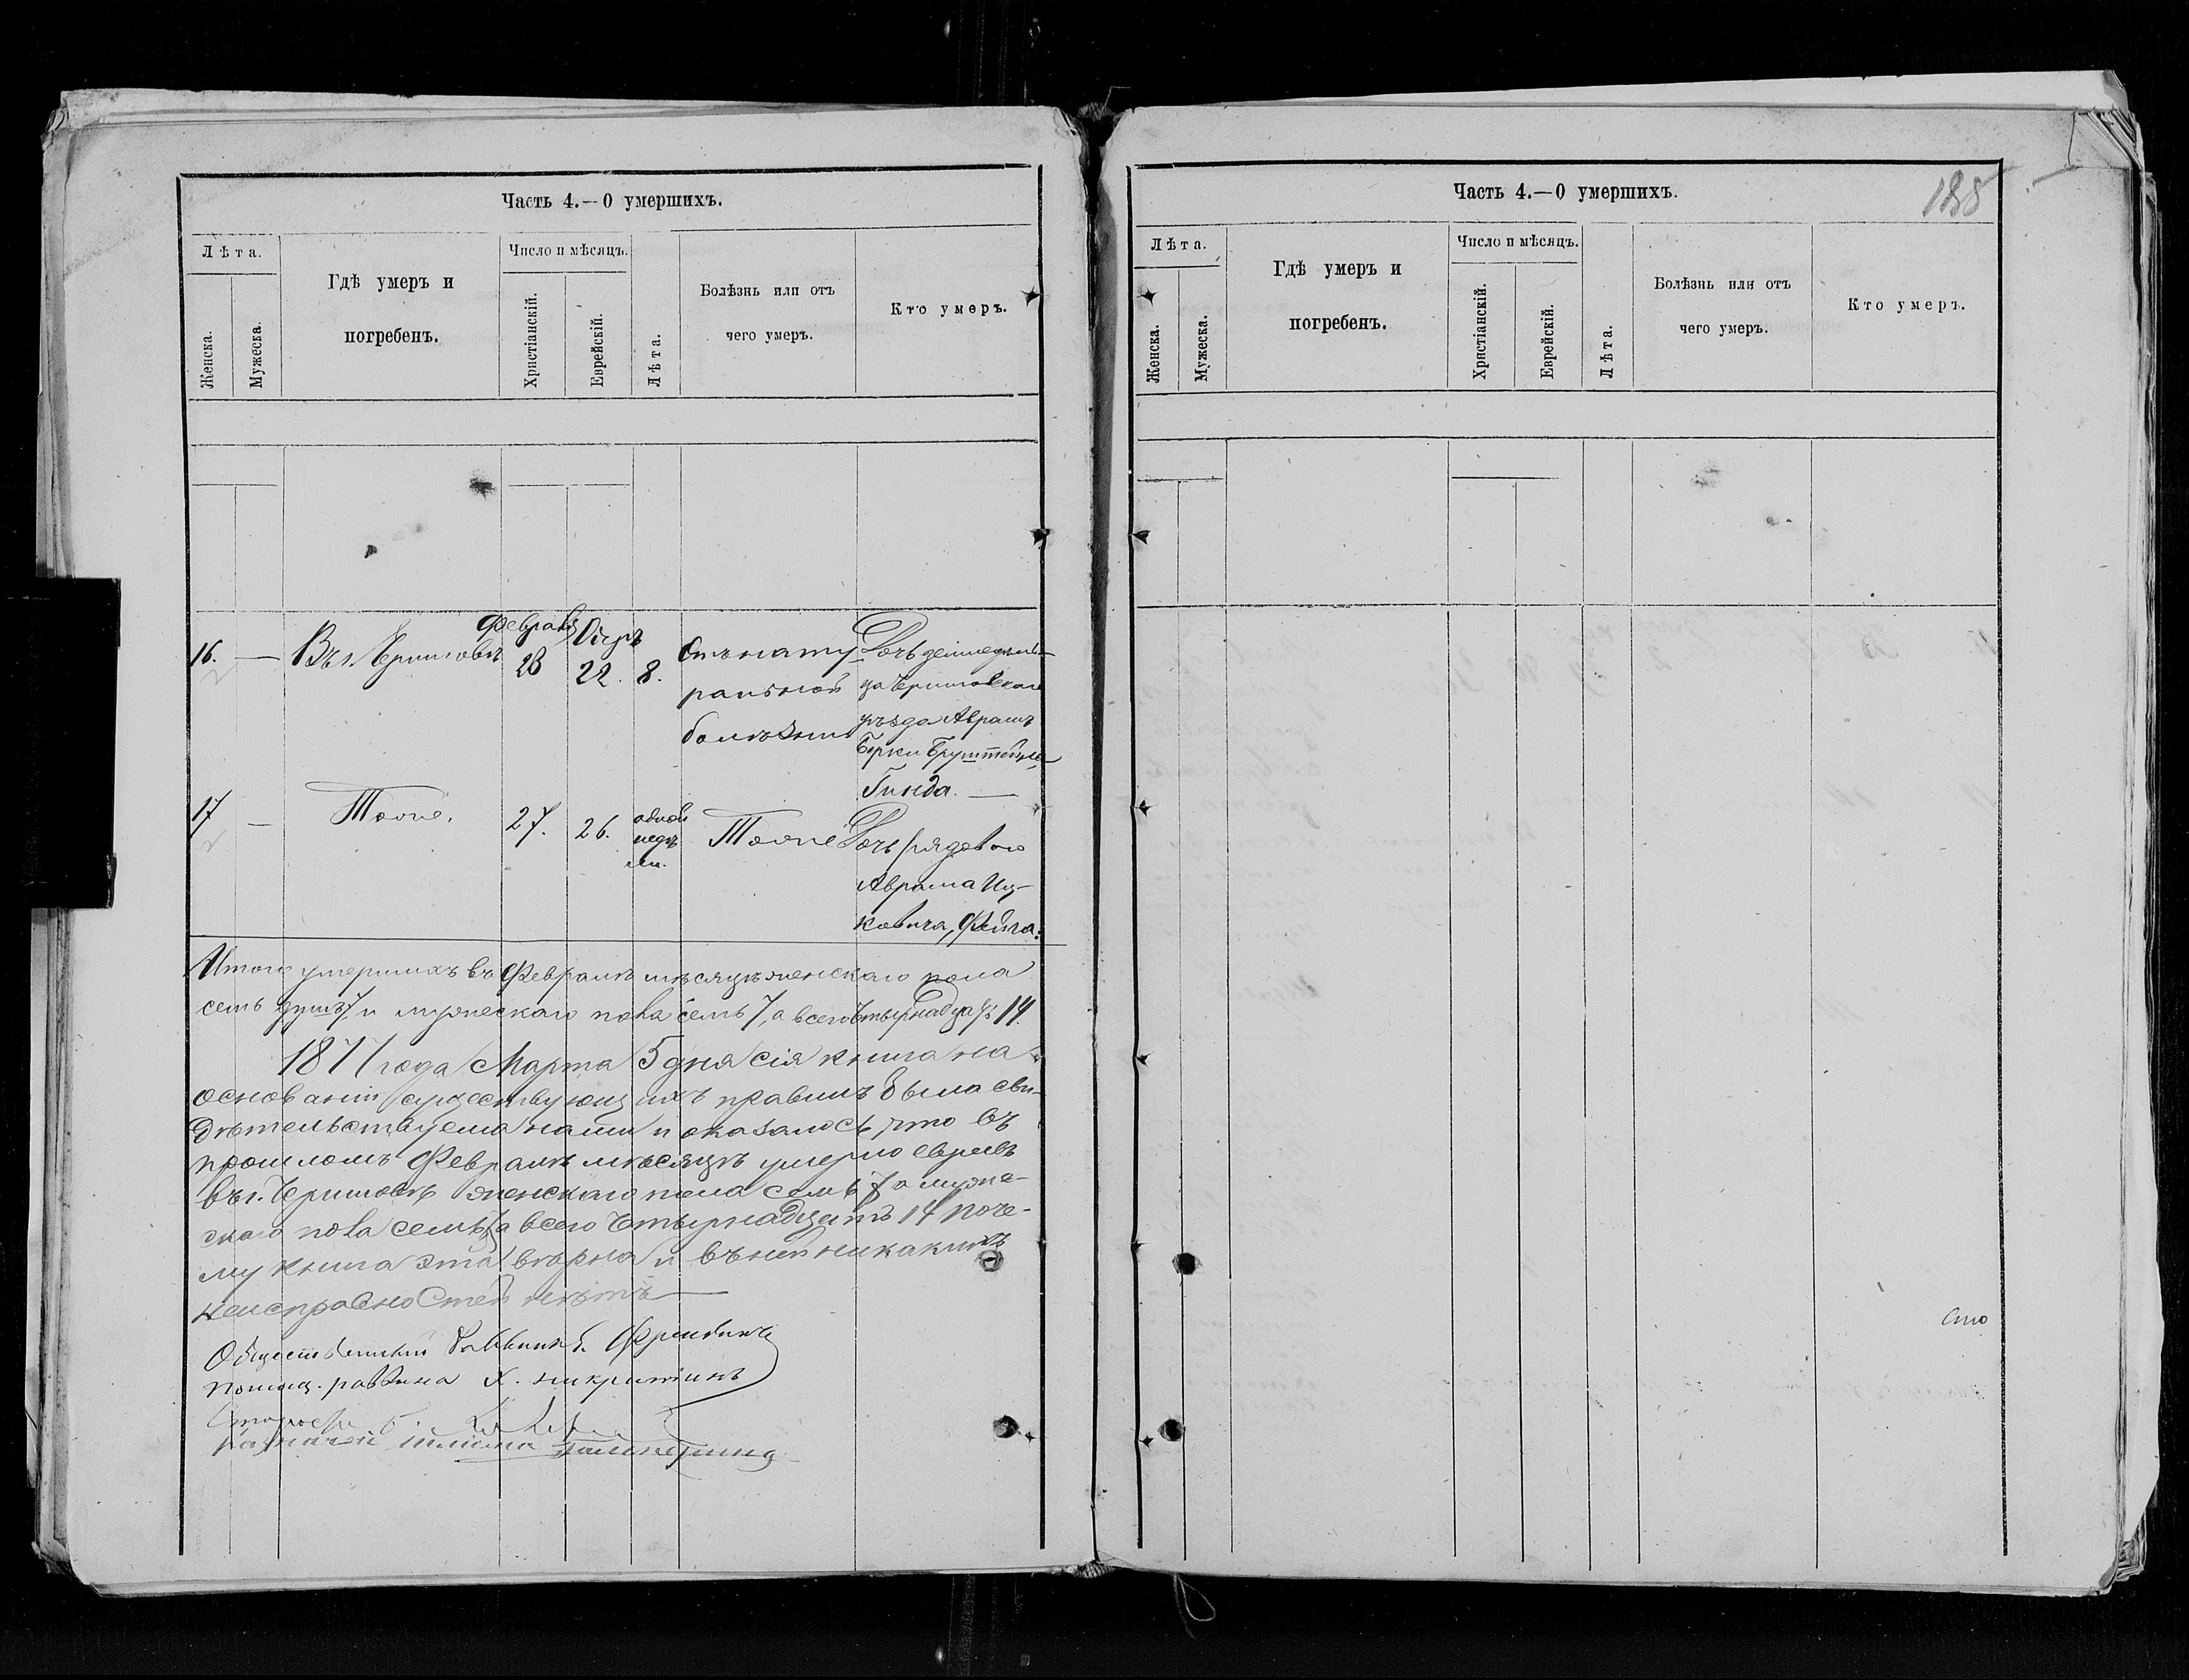 Часть 4.—О умершихъ.
Лѣта.
Женска.
Мужеска.
Гдѣ умеръ и
погребенъ.
Число и мѣсяцъ.
Христіанскій.
Еврейскій.
Лѣта.
Болѣзнь или отъ
чего умеръ.
Кто умеръ.
16. — Въ г. Черниговѣ
Февраля 23
Одеръ 22. 8.
Отъ нату
ральной
болѣзни
Дочь
ца Черниговскаго
уѣзда Аврамъ
Берки Бруштейна
Гинда. —
17 — Тоже. 27. 26.
одной
недѣ
ли.
Тоже
Дочь рядового
Аврама Иц-
ковича, Фейга.
Итого умершихъ въ Февралѣ мѣсяцѣ женскаго пола
семь душъ 7, и мужескаго пола семь 7, а всего Четырнадцать 14.
1877 года Марта 5 дня сія книга на
основаніи существующихъ правилъ была сви-
дѣтельствуема нами и оказалось, что въ
прошломъ Февралѣ мѣсяцѣ умерло евреевъ
въ г. Черниговѣ женскаго пола семь 7 а муже-
скаго пола семь, а всего Четырнадцать 14 поче-
му книга эта вѣрна и въ ней никакихъ
неисправностей нѣтъ —
Общественный Раввинъ
Помощ. раввина Х.
Староста
Казначей
Часть 4.—О умершихъ.
188
Лѣта.
Женска.
Мужеска.
Гдѣ умеръ и
погребенъ.
Число и мѣсяцъ.
Христіанскій.
Еврейскій.
Лѣта.
Болѣзнь или отъ
чего умеръ.
Кто умеръ.
Сто